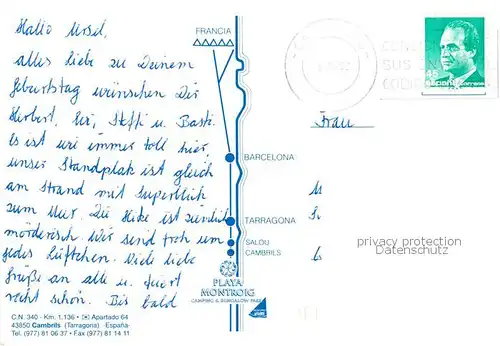 Hallo Ursel,
alles liebe zu Deinem
Geburtstag wünschen Dir
Herbert, Evi, Steffi u. Basti.
Es ist wie immer toll hier,
unser Standplatz ist gleich
am Strand mit Superblick
zum Meer. Die Hitze ist ziemlich
mörderisch. Wir sind froh um
jedes Lüftchen. Viele liebe
Grüße an alle u. feiert
recht schön. Bis bald
FRANCIA
BARCELONA
TARRAGONA
SALOU
CAMBRILS
PLAYA
MONTROIG
CAMPING & BUNGALOW PARK
C.N. 340 - Km. 1.136 • Apartado 64
43850 Cambrils (Tarragona) España
Tel. (977) 81 06 37 • Fax (977) 81 14 11
45
SUS
Frau
privacy protection
Datenschutz